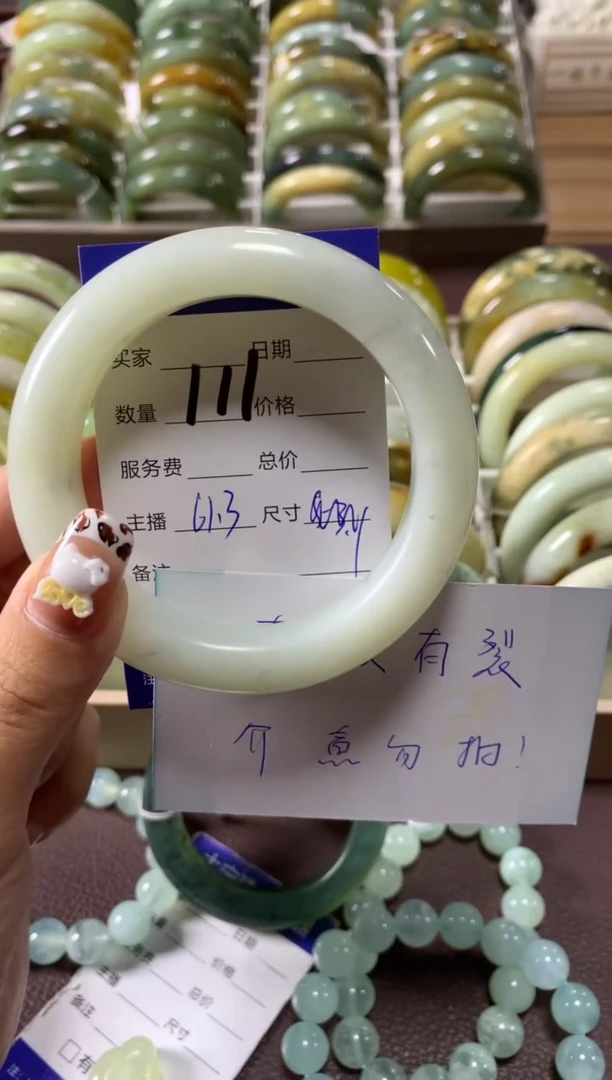 买家 日期
数量 111 价格
服务费 总价
主播 61.3 尺寸
备注
有裂
介意勿拍！
日期
价格
总价
主播
尺寸
备注
有